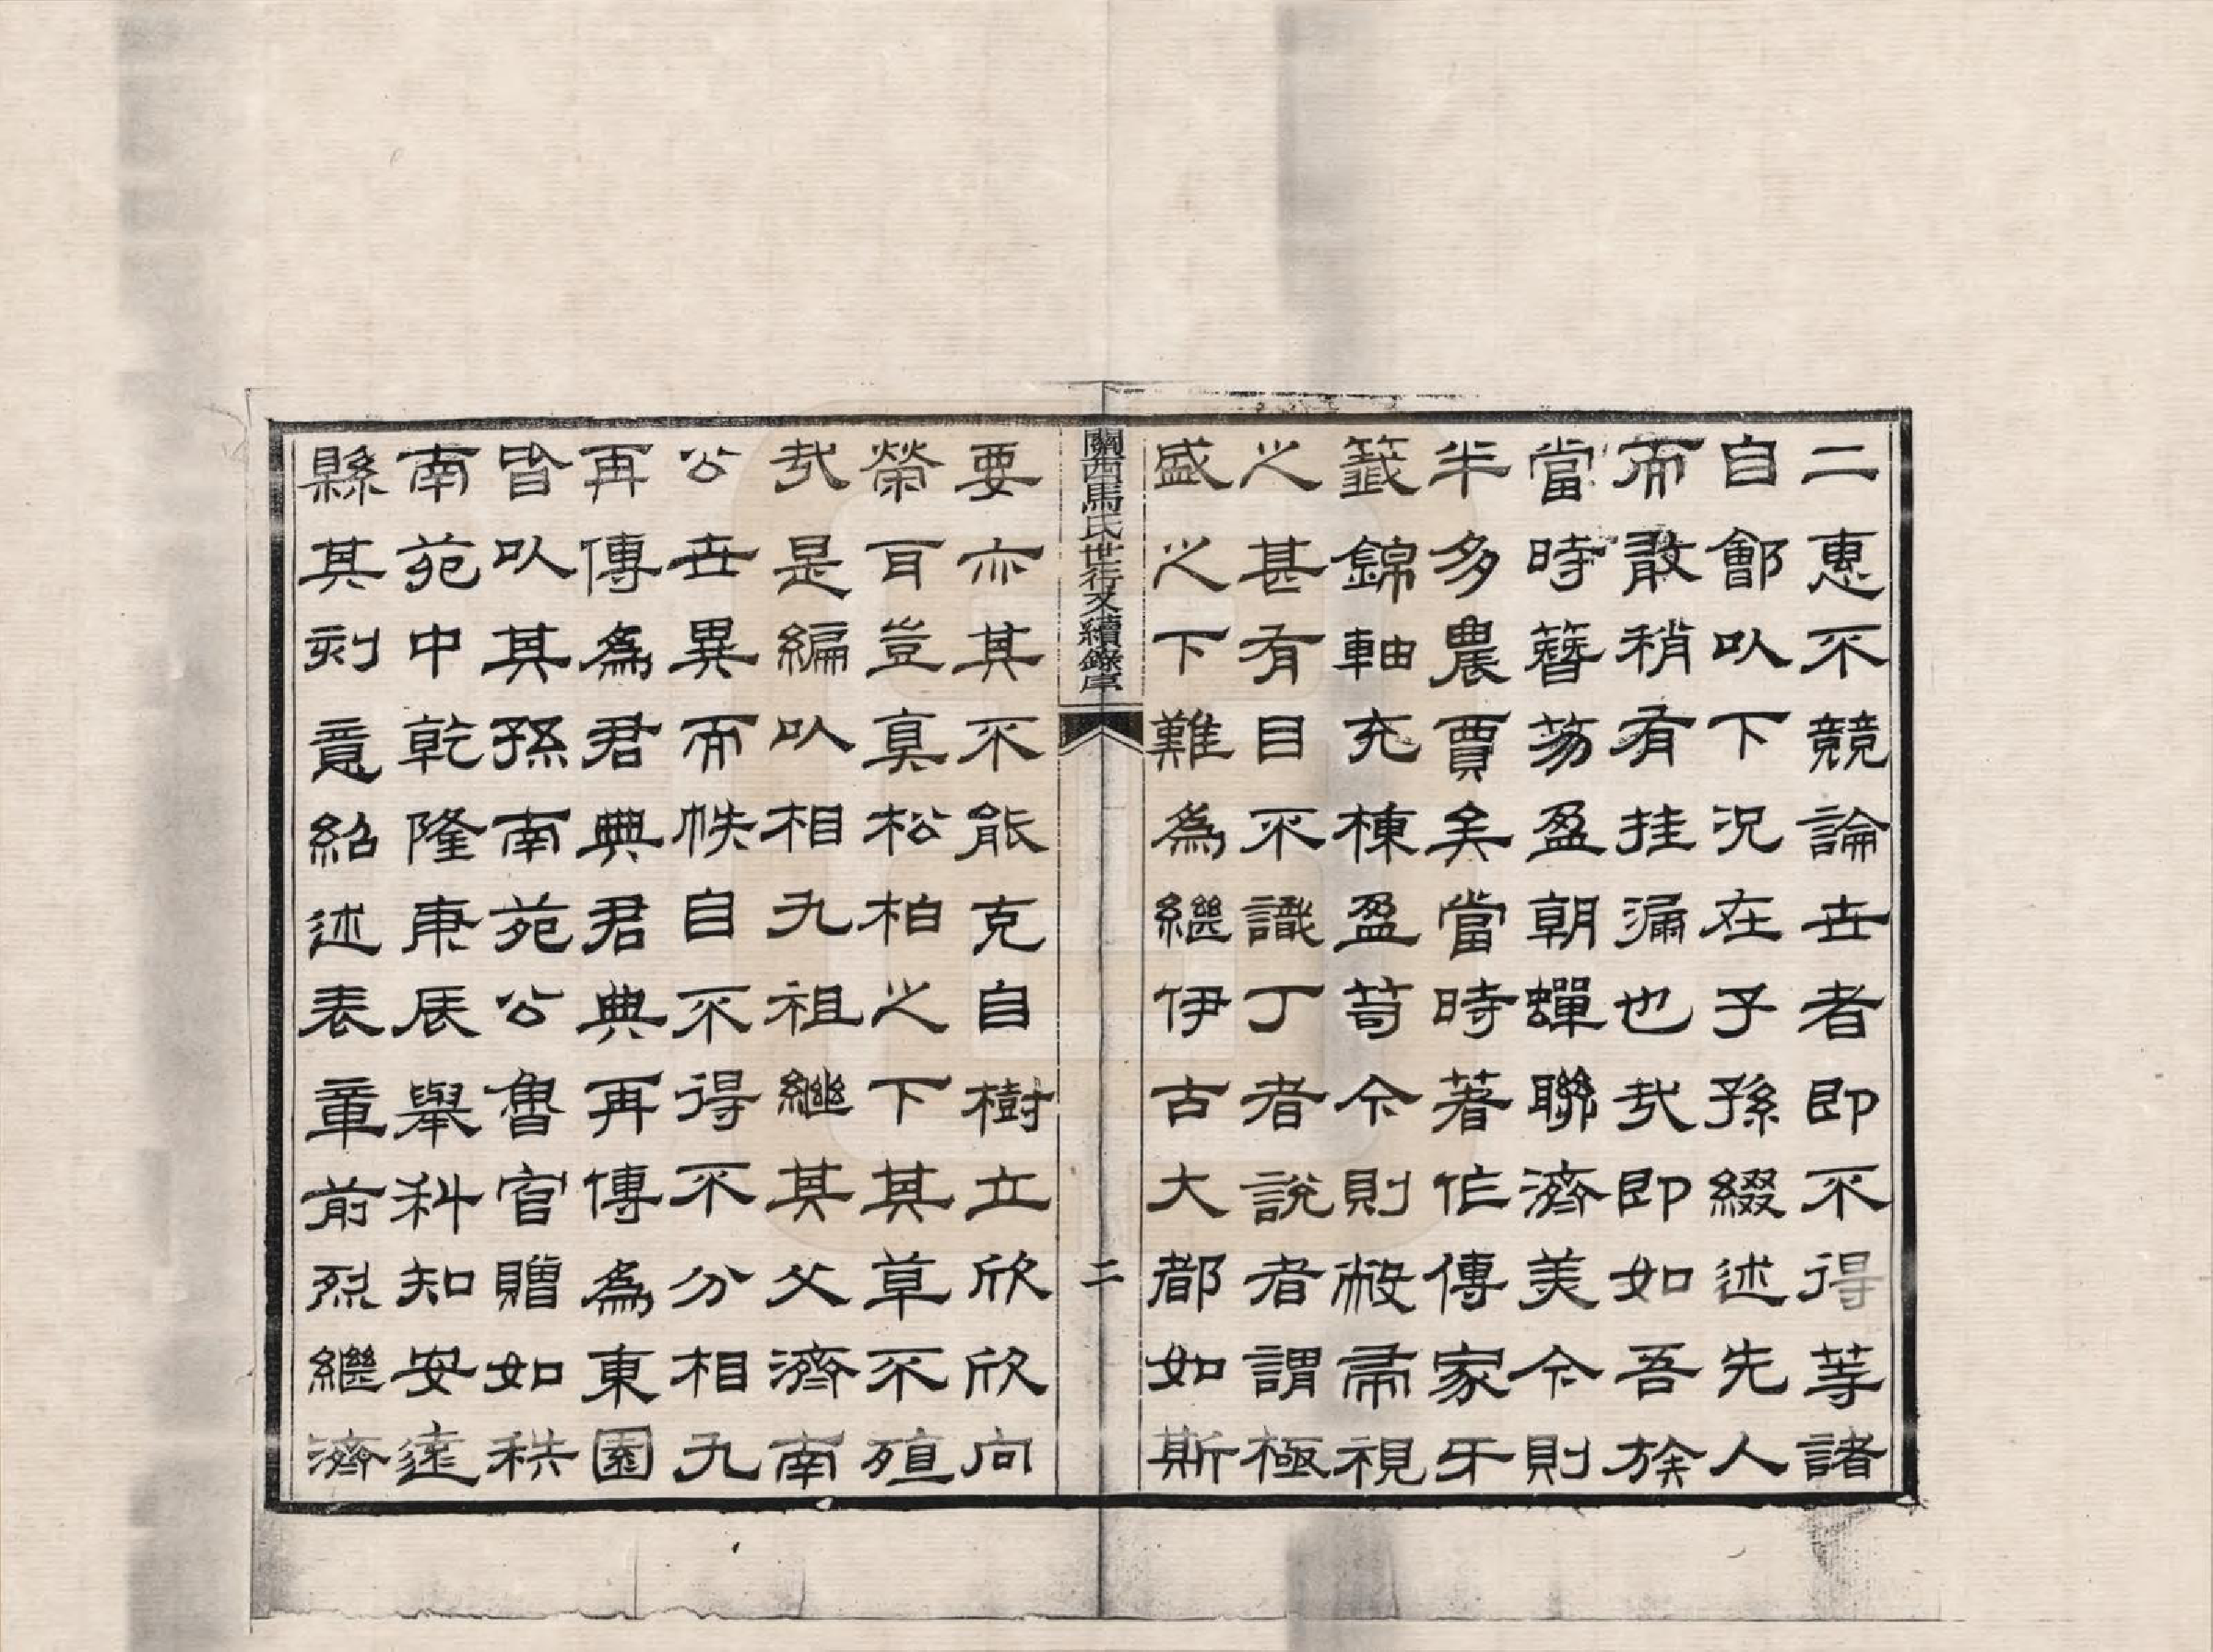 二惠不競論世者即不得等諸
自鄶以下況在子孫綴述先人
而敢稍有挂漏也哉即如吾族
當時簪笏盈朝蟬聯濟美今則
半多農賈矣當時著作傳家牙
籤錦軸充棟盈笥今則敝帚視
之甚有目不識丁者說者謂極
盛之下難為繼伊古大都如斯
關西馬氏世行又續錄序
二
要亦其不能克自樹立欣欣向
榮耳豈真松柏之下其草不殖
哉是編以相九祖繼其父濟南
公世異而帙自不得不分相九
再傳為君典君典再傳為東園
皆以其孫南苑公魯官贈如秩
南苑中乾隆庚辰舉科知安遠
縣其刻意紹述表章前烈繼濟